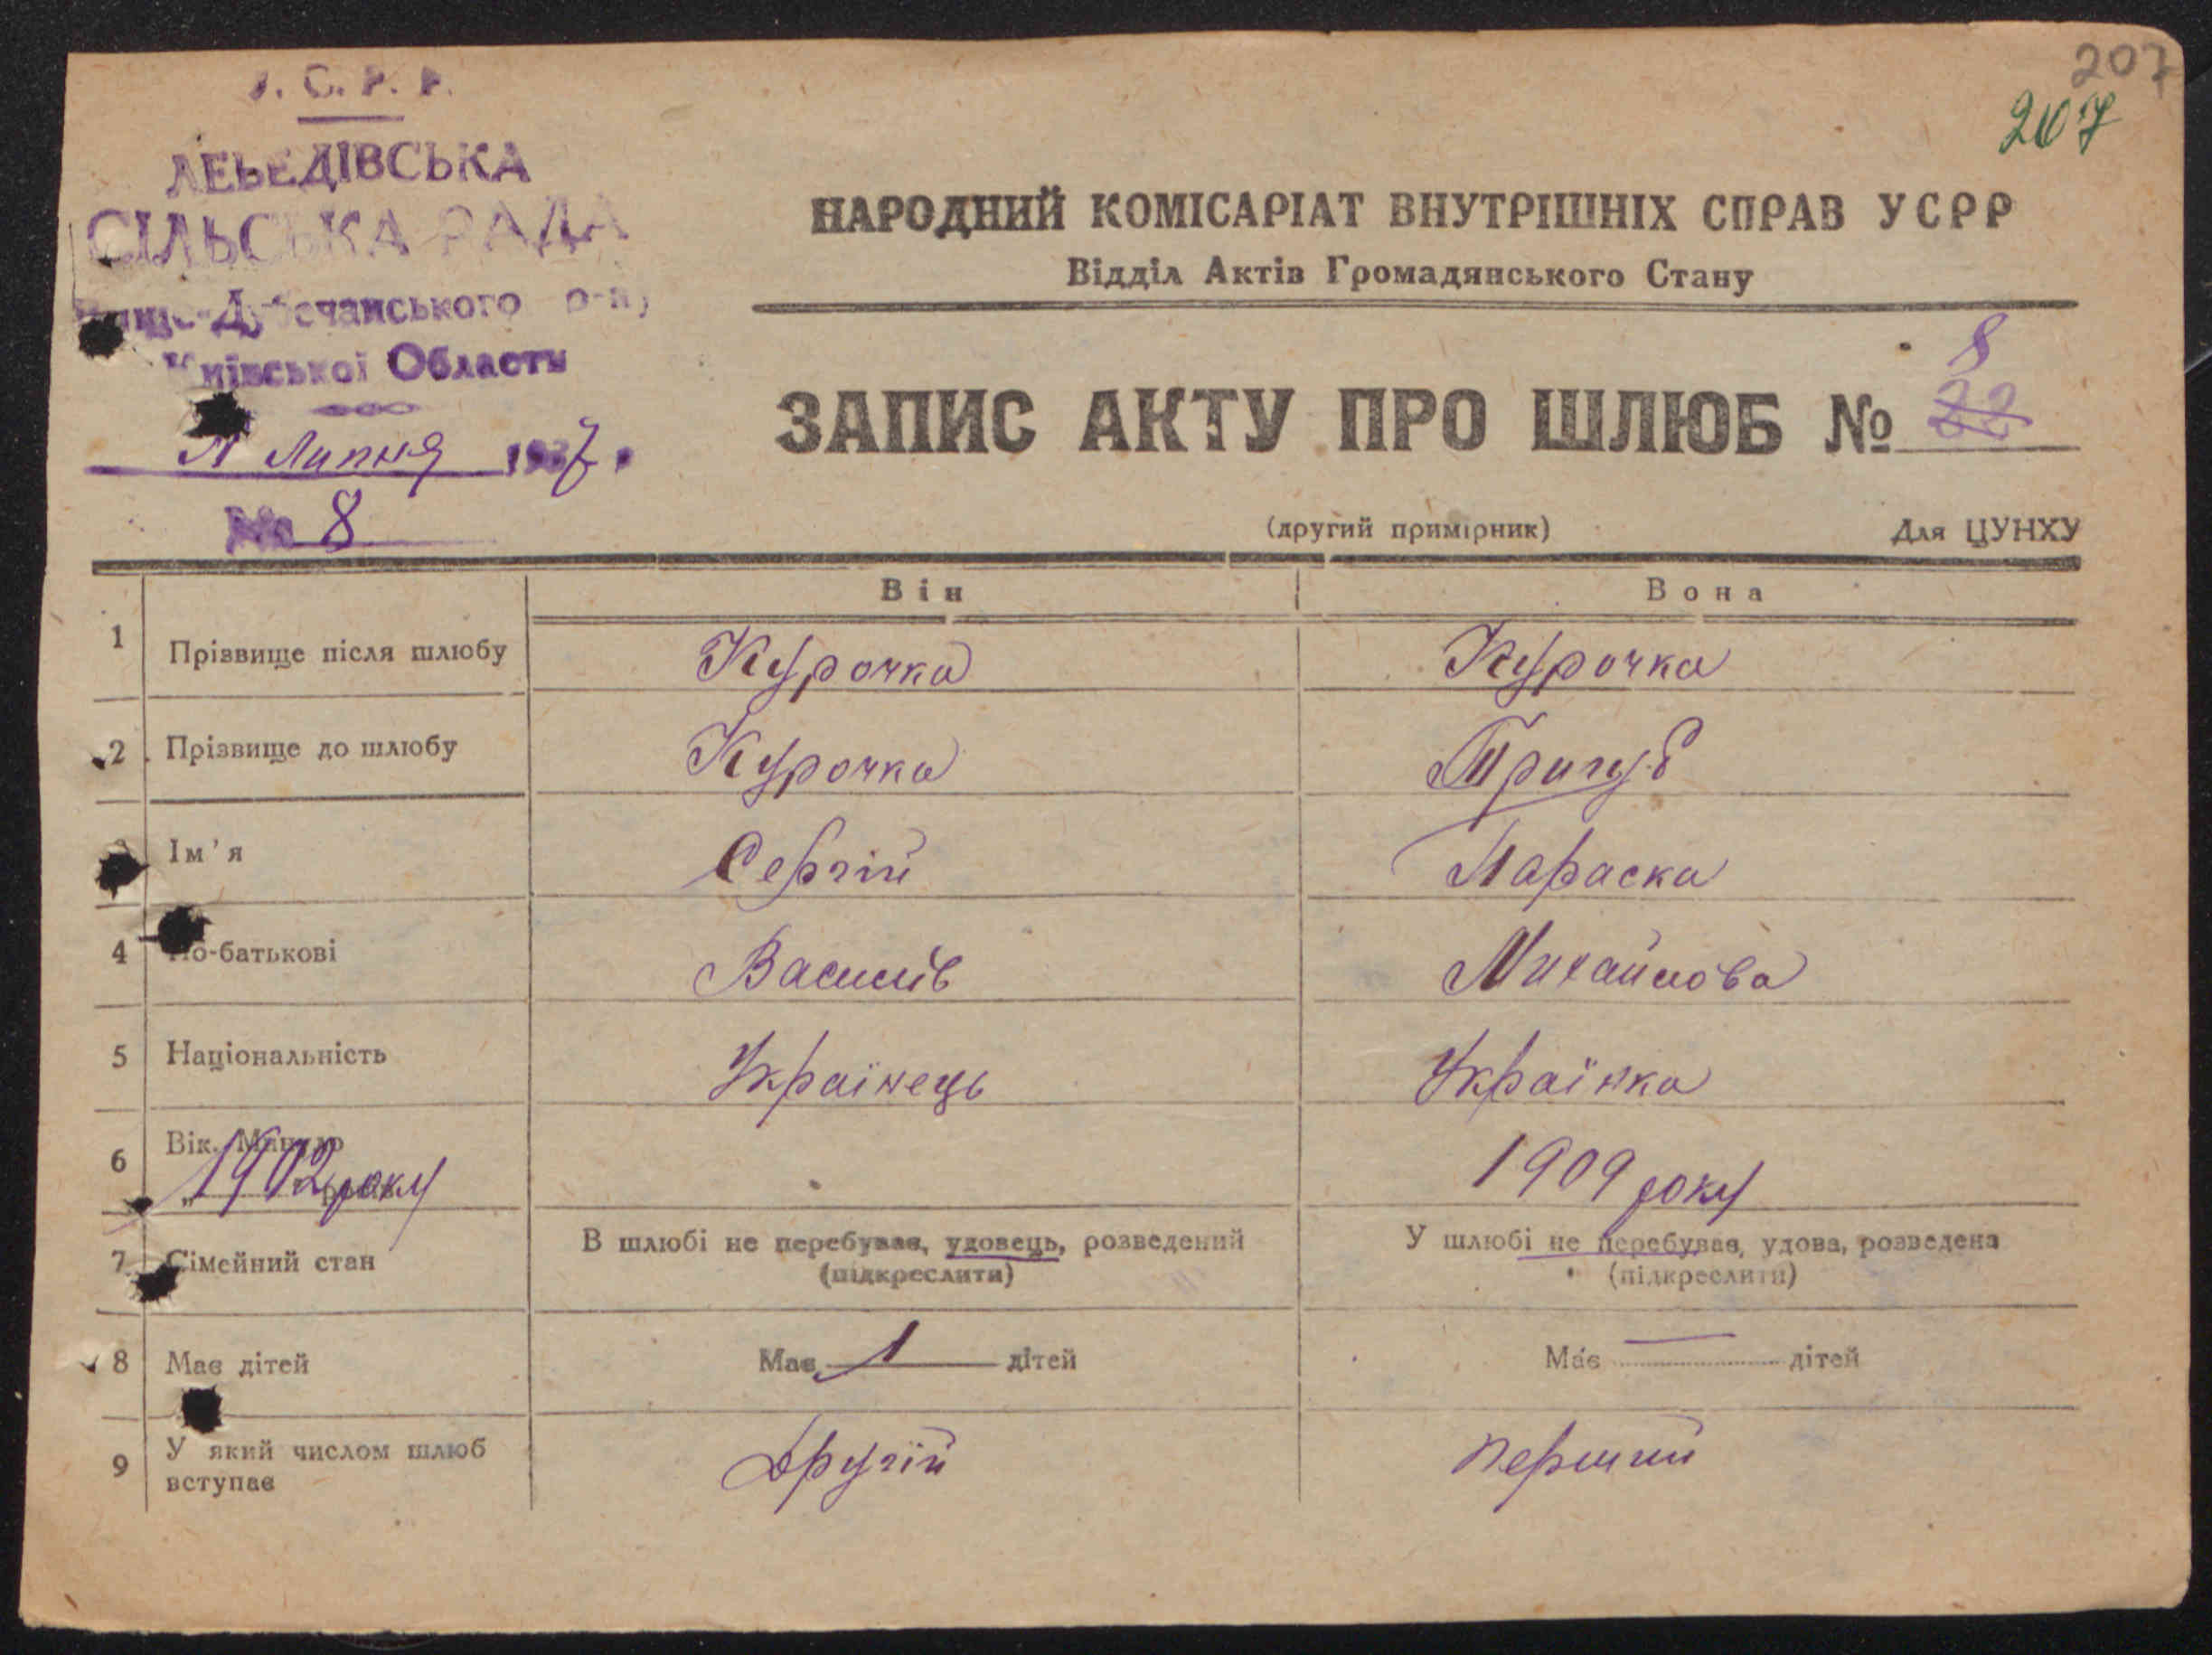 207
207
У. С. Р. Р.
ЛЕБЕДІВСЬКА
СІЛЬСЬКА РАДА
Дубечанського р-ну
Київської Области
Липня 1937 р.
№ 8
НАРОДНИЙ КОМІСАРІАТ ВНУТРІШНІХ СПРАВ УСРР
Відділ Актів Громадянського Стану
8
ЗАПИС АКТУ ПРО ШЛЮБ № 22
(другий примірник) Для ЦУНХУ
Він Вона
1 Прізвище після шлюбу Курочка Курочка
2 Прізвище до шлюбу Курочка Тригуб
3 Ім'я Сергій Параска
4 По-батькові Василів Михайлова
5 Національність Українець Українка
6 Вік. Минуло
1902 року 1909 року
7 Сімейний стан В шлюбі не перебував, удовець, розведений У шлюбі не перебував, удова, розведена
(підкреслити) (підкреслити)
8 Має дітей Має 1 дітей Має — дітей
9 У який числом шлюб вступає Другій Перший